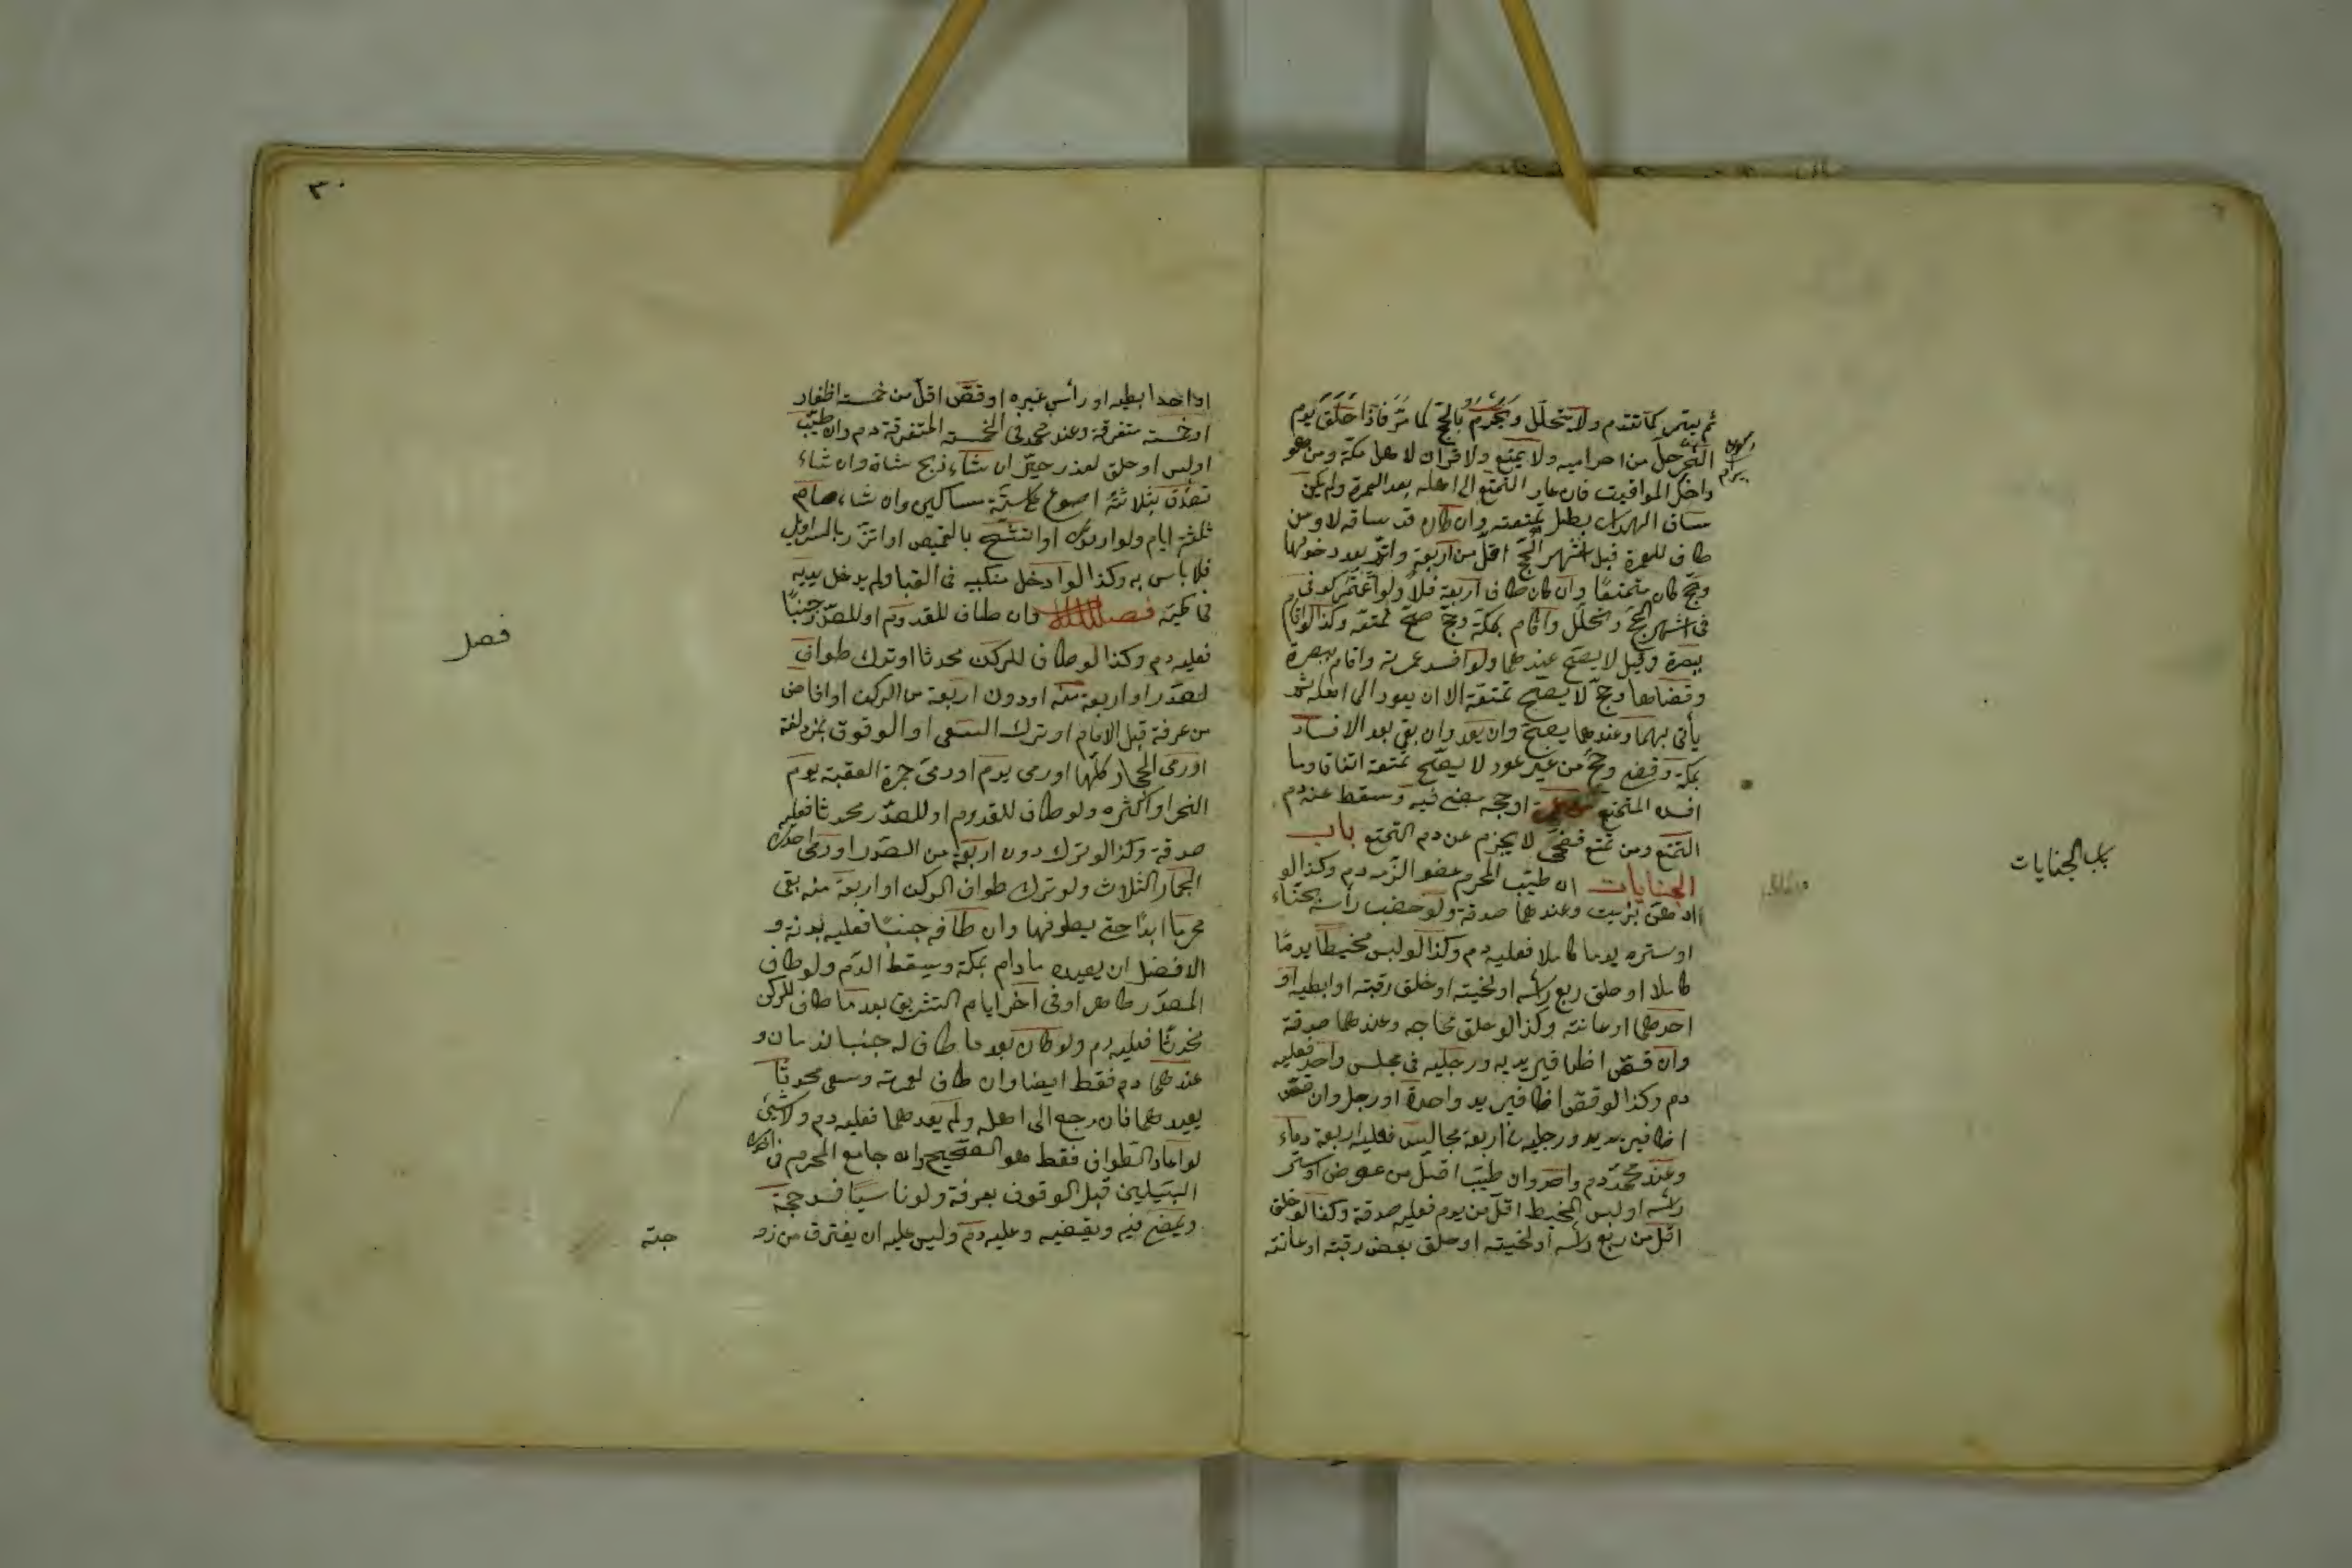 ثم يعتمر كما تقدم ولا يتحلل ويحرم بالحج كما مر فاذا حلق يوم
النحر حل من احراميه ولا تمتع ولا قران لاهل مكة ومن هو
داخل المواقيت فان عاد المتمتع الى اهله بعد العمرة ولم يكن
ساق الهدى بطل تمتعه وان كان قد ساقه لا ومن
طاف للعمرة قبل اشهر الحج اقل من اربعة واتم بعد دخولها
وحج كان متمتعًا وان كان طاف اربعة فلا ولو اعتمر كوفى
فى اشهر الحج وتحلل واقام بمكة وحج صح تمتعه وكذا لو اقام
ببصرة وقيل لا يصح عندهما ولو افسد عمرته واقام ببصرة
وقضاها وحج لا يصح تمتعه الا ان يعود الى اهله ثم
يأتى بهما وعندهما يصح وان لم يعد وان بقى بعد الافساد
بمكة وقضى وحج من غير عود لا يصح تمتعه اتفاقا وما
افسده المتمتع من اوحجه مضى فيه وسقط عنه دم
التمتع ومن تمتع فضحى لا يجزم عن دم التمتع باب
الجنايات ان طيب المحرم عضوا لزمه دم وكذا لو
ادهن بزيت وعندهما صدقة ولو خضب رأسه بحناء
او ستره يوما كاملا فعليه دم وكذا لو لبس مخيطا يومًا
كاملا او حلق ربع رأسه او لحيته او حلق رقبته او ابطيه او
احدهما او عانته وكذا لو حلق محاجمه وعندهما صدقة
وان قص اظافير يديه ورجليه فى مجلس واحد فعليه
دم وكذا لو قص اظافير يد واحدة او رجل وان قص
اظافير يديه ورجليه فى اربعة مجالس فعليه اربعة دماء
وعند محمد دم واحد وان طيب اقل من عضو او ستر
رأسه او لبس المخيط اقل من يوم فعليه صدقة وكذا لو حلق
اقل من ربع رأسه او لحيته او حلق بعض رقبته او عانته
باب الجنايات
٣٠
او احد ابطيه او رأس غيره او قص اقل من خمسة اظفار
او خمسة متفرقة وعند محمد فى الخمسة المتفرقة دم وان طيب
او لبس او حلق لعذر خير ان شاء ذبح شاة وان شاء
تصدق بثلاثة اصوع على ستة مساكين وان شاء صام
ثلثة ايام ولو ارتدى او اتشح بالقميص او اتزر بالسراويل
فلا باس به وكذا لو ادخل منكبيه فى القبا ولم يدخل يديه
فى كميه فصل وان طاف للقدوم او للصدر جنبًا
فعليه دم وكذا لو طاف للركن محدثا او ترك طواف
الصدر او اربعة منه او دون اربعة من الركن او افاض
من عرفة قبل الامام او ترك السعى او الوقوف بمزدلفة
او رمى الجمار كلها او رمى يوم او رمى جمرة العقبة يوم
النحر او اكثره ولو طاف للقدوم او للصدر محدثا فعليه
صدقة وكذا لو ترك دون اربعة من الصدر او رمى احدى
الجمار الثلاث ولو ترك طواف الركن او اربعة منه بقى
محرما ابدًا حتى يطوفها وان طافه جنبًا فعليه بدنة و
الافضل ان يعيده ما دام بمكة ويسقط الدم ولو طاف
للصدر طاهرا وفى آخر ايام التشريق بعد ما طاف للركن
محدثًا فعليه دم ولو كان بعد ما طاف له جنبا لدمان و
عندهما دم فقط ايضا وان طاف لعمرته وسعى محدثًا
يعيدهما فان رجع الى اهله ولم يعدهما فعليه دم ولا شئ
لو اعاد الطواف فقط هو الصحيح وان جامع المحرم فى احدى
السبيلين قبل الوقوف بعرفة ولو ناسيًا فسد حجه
ويمضى فيه ويقضيه وعليه دم وليس عليه ان يفترق من زو
جته
فصل